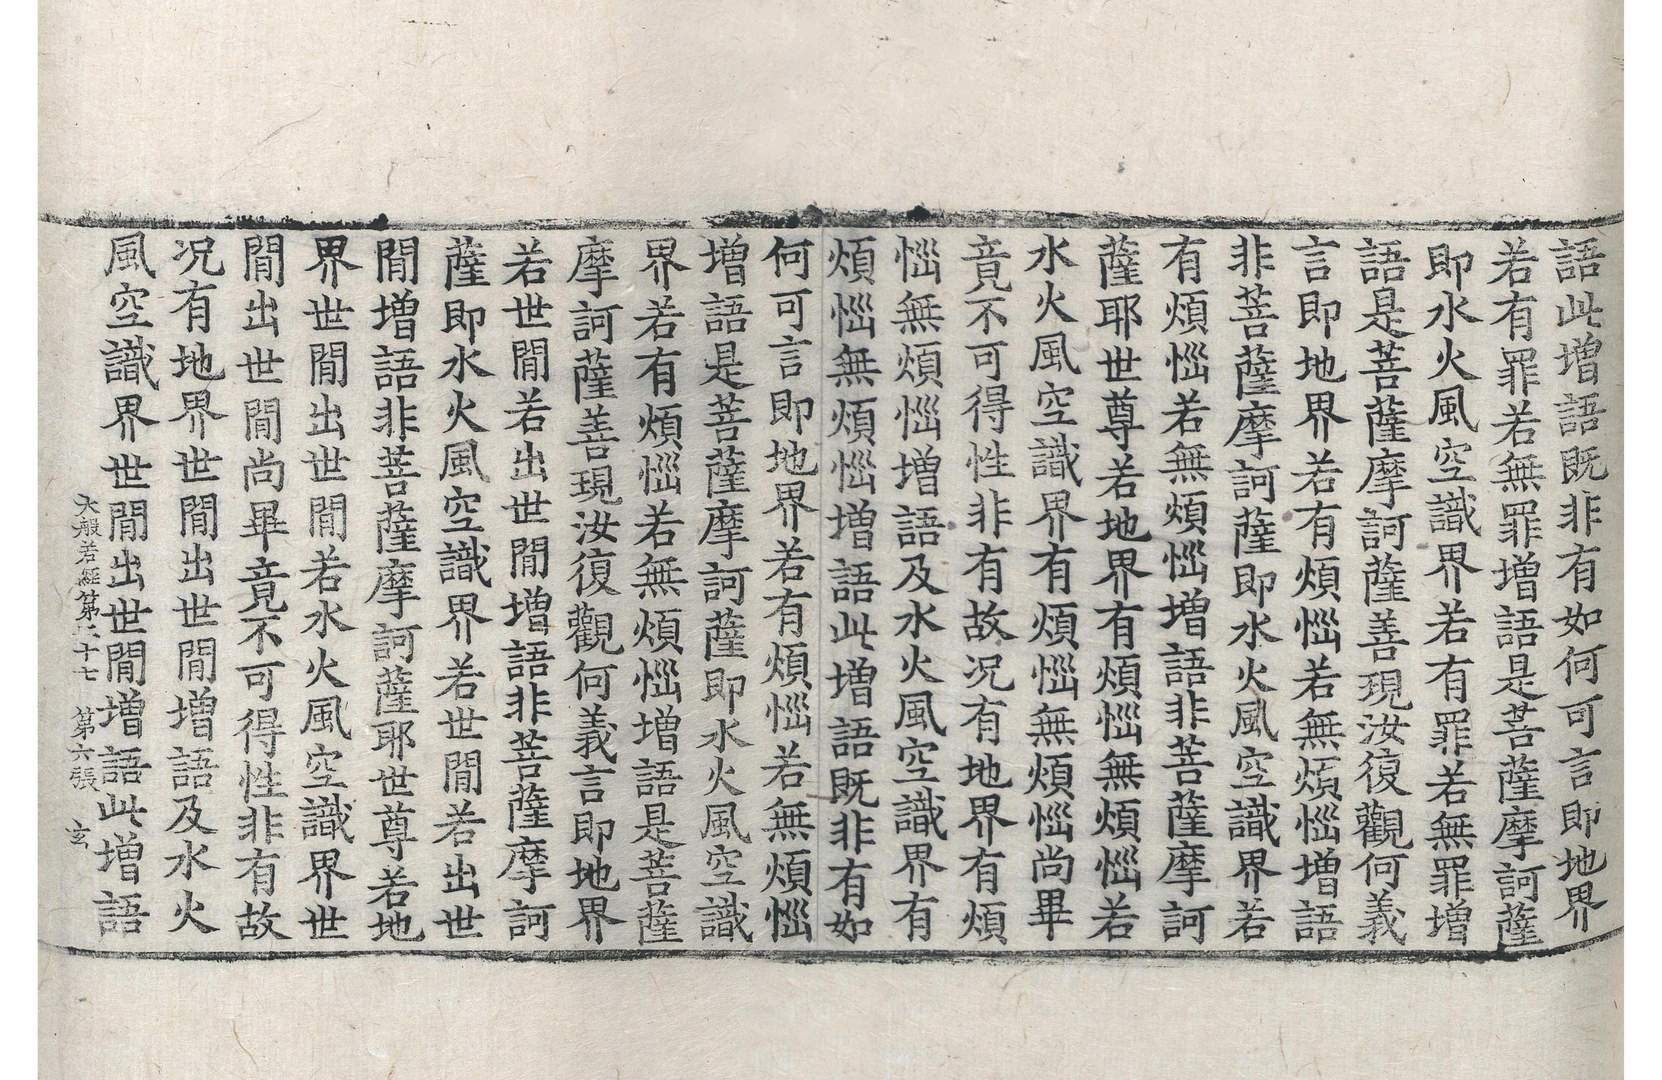 語此增語既非有如何可言即地界
若有罪若無罪增語是菩薩摩訶薩
即水火風空識界若有罪若無罪增
語是菩薩摩訶薩善現汝復觀何義
言即地界若有煩惱若無煩惱增語
非菩薩摩訶薩即水火風空識界若
有煩惱若無煩惱增語非菩薩摩訶
薩耶世尊若地界有煩惱無煩惱若
水火風空識界有煩惱無煩惱尚畢
竟不可得性非有故况有地界有煩
惱無煩惱增語及水火風空識界有
煩惱無煩惱增語此增語既非有如
何可言即地界若有煩惱若無煩惱
增語是菩薩摩訶薩即水火風空識
界若有煩惱若無煩惱增語是菩薩
摩訶薩善現汝復觀何義言即地界
若世閒若出世閒增語非菩薩摩訶
薩即水火風空識界若世閒若出世
閒增語非菩薩摩訶薩耶世尊若地
界世閒出世閒若水火風空識界世
閒出世閒尚畢竟不可得性非有故
况有地界世閒出世閒增語及水火
風空識界世閒出世閒增語此增語
大般若經第二十七 第六張 玄